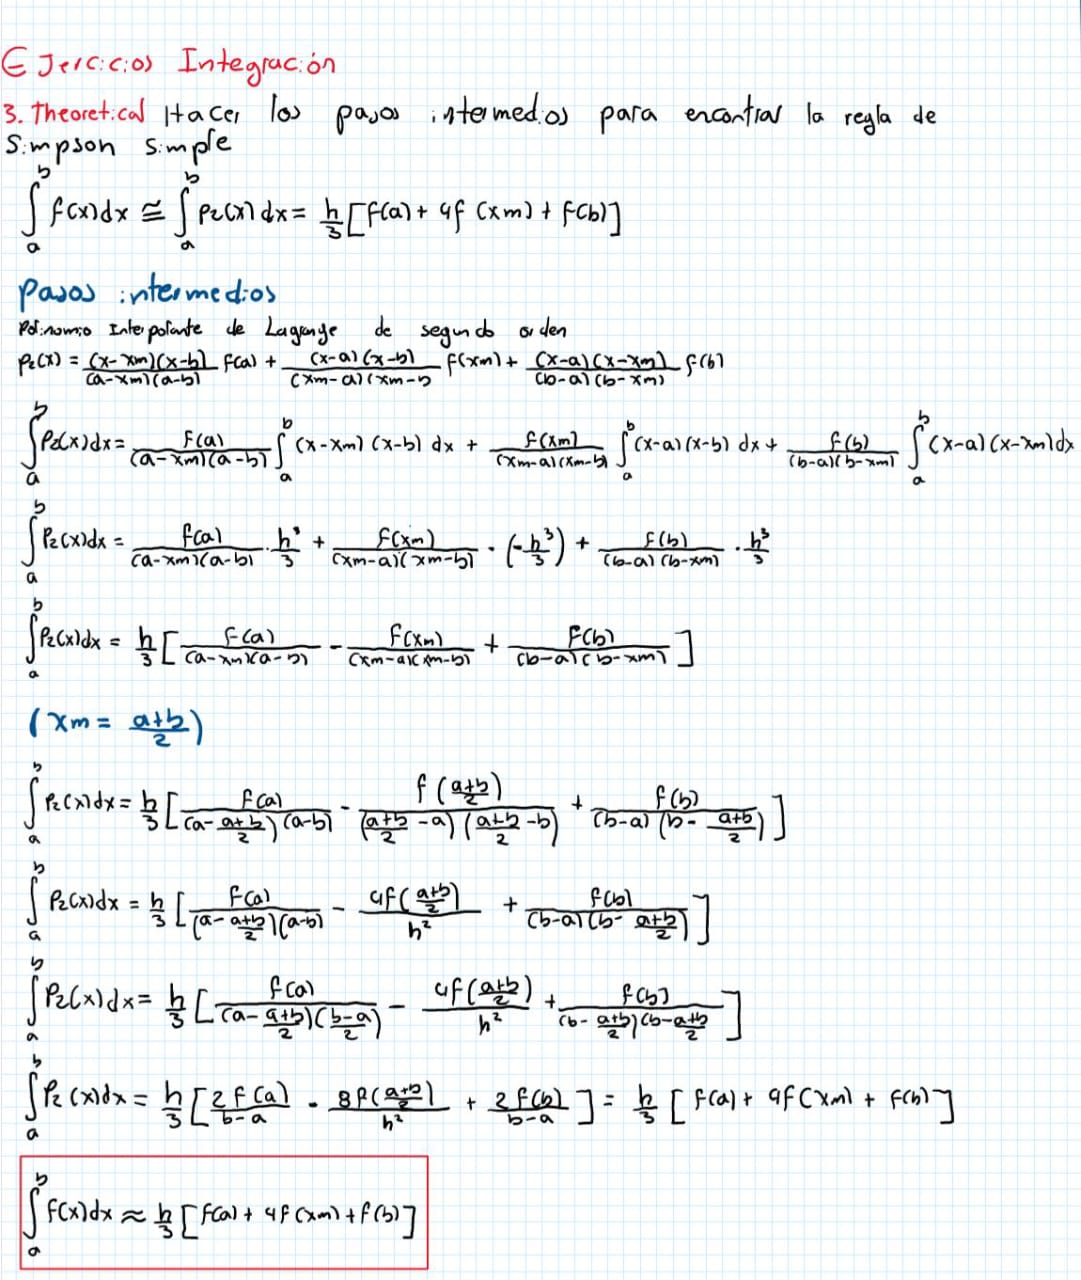 Ejercicios Integración
3. Theoretical Hacer los pasos intermedios para encontrar la regla de
Simpson simple
∫_a^b f(x)dx ≅ ∫_a^b P2(x)dx = h/3 [f(a) + 4f (xm) + f(b)]
Pasos intermedios
Polinomio Interpolante de Lagrange de segundo orden
P2(x) = (x-xm)(x-b)/(a-xm)(a-b) f(a) + (x-a)(x-b)/(xm-a)(xm-b f(xm) + (x-a)(x-xm)/(b-a)(b-xm) f(b)
∫_a^b P2(x)dx = f(a)/(a-xm)(a-b) ∫_a^b (x-xm)(x-b) dx + f(xm)/(xm-a)(xm-b) ∫_a^b (x-a)(x-b) dx + f(b)/(b-a)(b-xm) ∫_a^b (x-a)(x-xm)dx
∫_a^b P2(x)dx = f(a)/(a-xm)(a-b) · h³/3 + f(xm)/(xm-a)(xm-b) · (-h³/3) + f(b)/(b-a)(b-xm) · h³/3
∫_a^b P2(x)dx = h/3 [f(a)/(a-xm)(a-b) - f(xm)/(xm-a)(xm-b) + f(b)/(b-a)(b-xm)]
(xm = a+b/2)
∫_a^b P2(x)dx = h/3 [f(a)/(a-a+b/2)(a-b) - f(a+b/2)/(a+b/2 -a)(a+b/2 -b) + f(b)/(b-a)(b-a+b/2)]
∫_a^b P2(x)dx = h/3 [f(a)/(a-a+b/2)(a-b) - 4f(a+b/2)/h² + f(b)/(b-a)(b-a+b/2)]
∫_a^b P2(x)dx = h/3 [f(a)/(a-a+b/2)(b-a/2) - 4f(a+b/2)/h² + f(b)/(b-a+b/2)(b-a+b/2]
∫_a^b P2(x)dx = h/3 [2f(a)/b-a - 8f(a+b/2)/h² + 2f(b)/b-a] = h/3 [f(a) + 4f(xm) + f(b)]
∫_a^b f(x)dx ≈ h/3 [f(a) + 4f(xm) + f(b)]